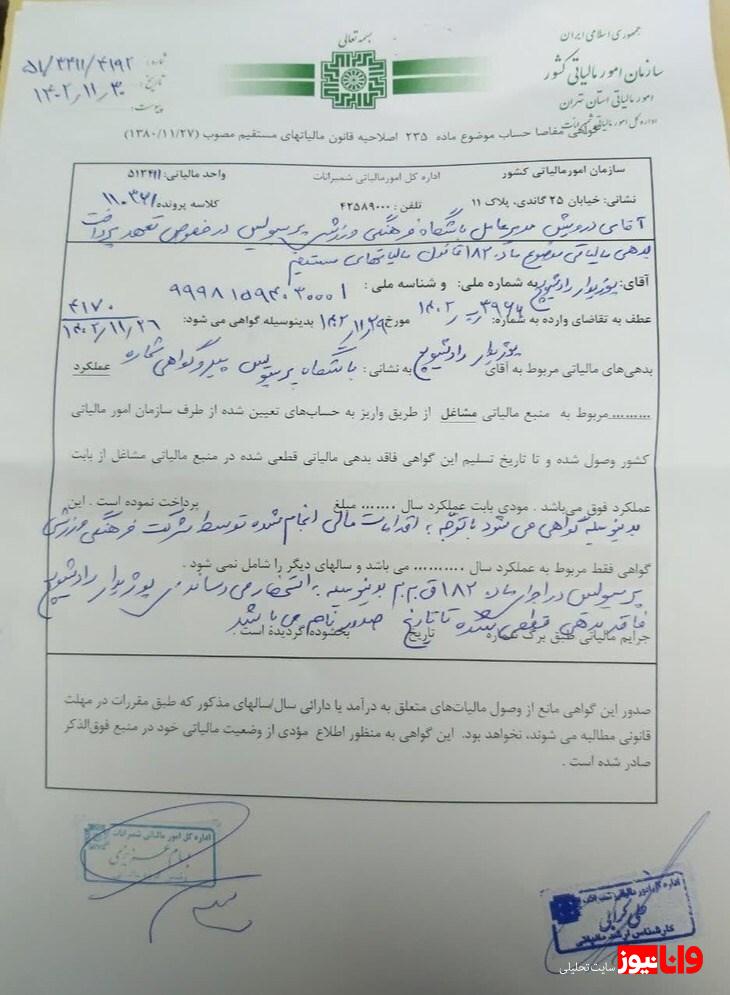 بسمه تعالی
جمهوری اسلامی ایران
سازمان امور مالیاتی کشور
امور مالیاتی استان تهران
اداره کل امور مالیاتی
شماره: ۵۱/۳۴۱۱/۴۱۹۲
تاریخ: ۱۴۰۲/۱۱/۳۰
پیوست:
گواهی مفاصا حساب موضوع ماده ۲۳۵ اصلاحیه قانون مالیاتهای مستقیم مصوب (۱۳۸۰/۱۱/۲۷)
سازمان امورمالیاتی کشور اداره کل امورمالیاتی شمیرانات واحد مالیاتی: ۵۱۳۴۱۱
نشانی: خیابان ۲۵ گاندی، پلاک ۱۱ تلفن: ۴۲۵۸۹۰۰۰ کلاسه پرونده
آقای درویش مدیرعامل باشگاه فرهنگی ورزشی پرسپولیس در خصوص تعهد پرداخت
بدهی مالیاتی موضوع ماده ۱۸۲ قانون مالیاتهای مستقیم
آقای: بوژیدار رادشویچ به شماره ملی: و شناسه ملی:
عطف به تقاضای وارده به شماره: مورخ ۱۴۰۲/۱۱/۲۹ بدینوسیله گواهی می شود: ۴۱۷۰ ۱۴۰۲/۱۱/۲۶
بدهی‌های مالیاتی مربوط به آقای بوژیدار رادشویچ به نشانی: باشگاه پرسپولیس پیرو گواهی شماره عملکرد
.........مربوط به منبع مالیاتی مشاغل از طریق واریز به حساب‌های تعیین شده از طرف سازمان امور مالیاتی
کشور وصول شده و تا تاریخ تسلیم این گواهی فاقد بدهی مالیاتی قطعی شده در منبع مالیاتی مشاغل از بابت
عملکرد فوق می‌باشد . مودی بابت عملکرد سال ....... مبلغ پرداخت نموده است . این
بدینوسیله گواهی می شود با توجه به اقدامات مالی انجام شده توسط شرکت فرهنگی ورزشی
گواهی فقط مربوط به عملکرد سال .......... می باشد و سالهای دیگر را شامل نمی شود .
پرسپولیس در اجرای ماده ۱۸۲ ق.م.م بدینوسیله به استحضار می رساند بوژیدار رادشویچ
فاقد بدهی قطعی شده تا تاریخ صدور نامه می باشد
جرایم مالیاتی طبق برگ شماره تاریخ بخشوده گردیده است .
صدور این گواهی مانع از وصول مالیات‌های متعلق به درآمد یا دارائی سال/سالهای مذکور که طبق مقررات در مهلت
قانونی مطالبه می شوند، نخواهد بود. این گواهی به منظور اطلاع مؤدی از وضعیت مالیاتی خود در منبع فوق‌الذکر
صادر شده است .
اداره کل امور مالیاتی شمیرانات
اداره کل امور مالیاتی
کارشناس ارشد مالیاتی
وانا نیوز
سایت تحلیلی